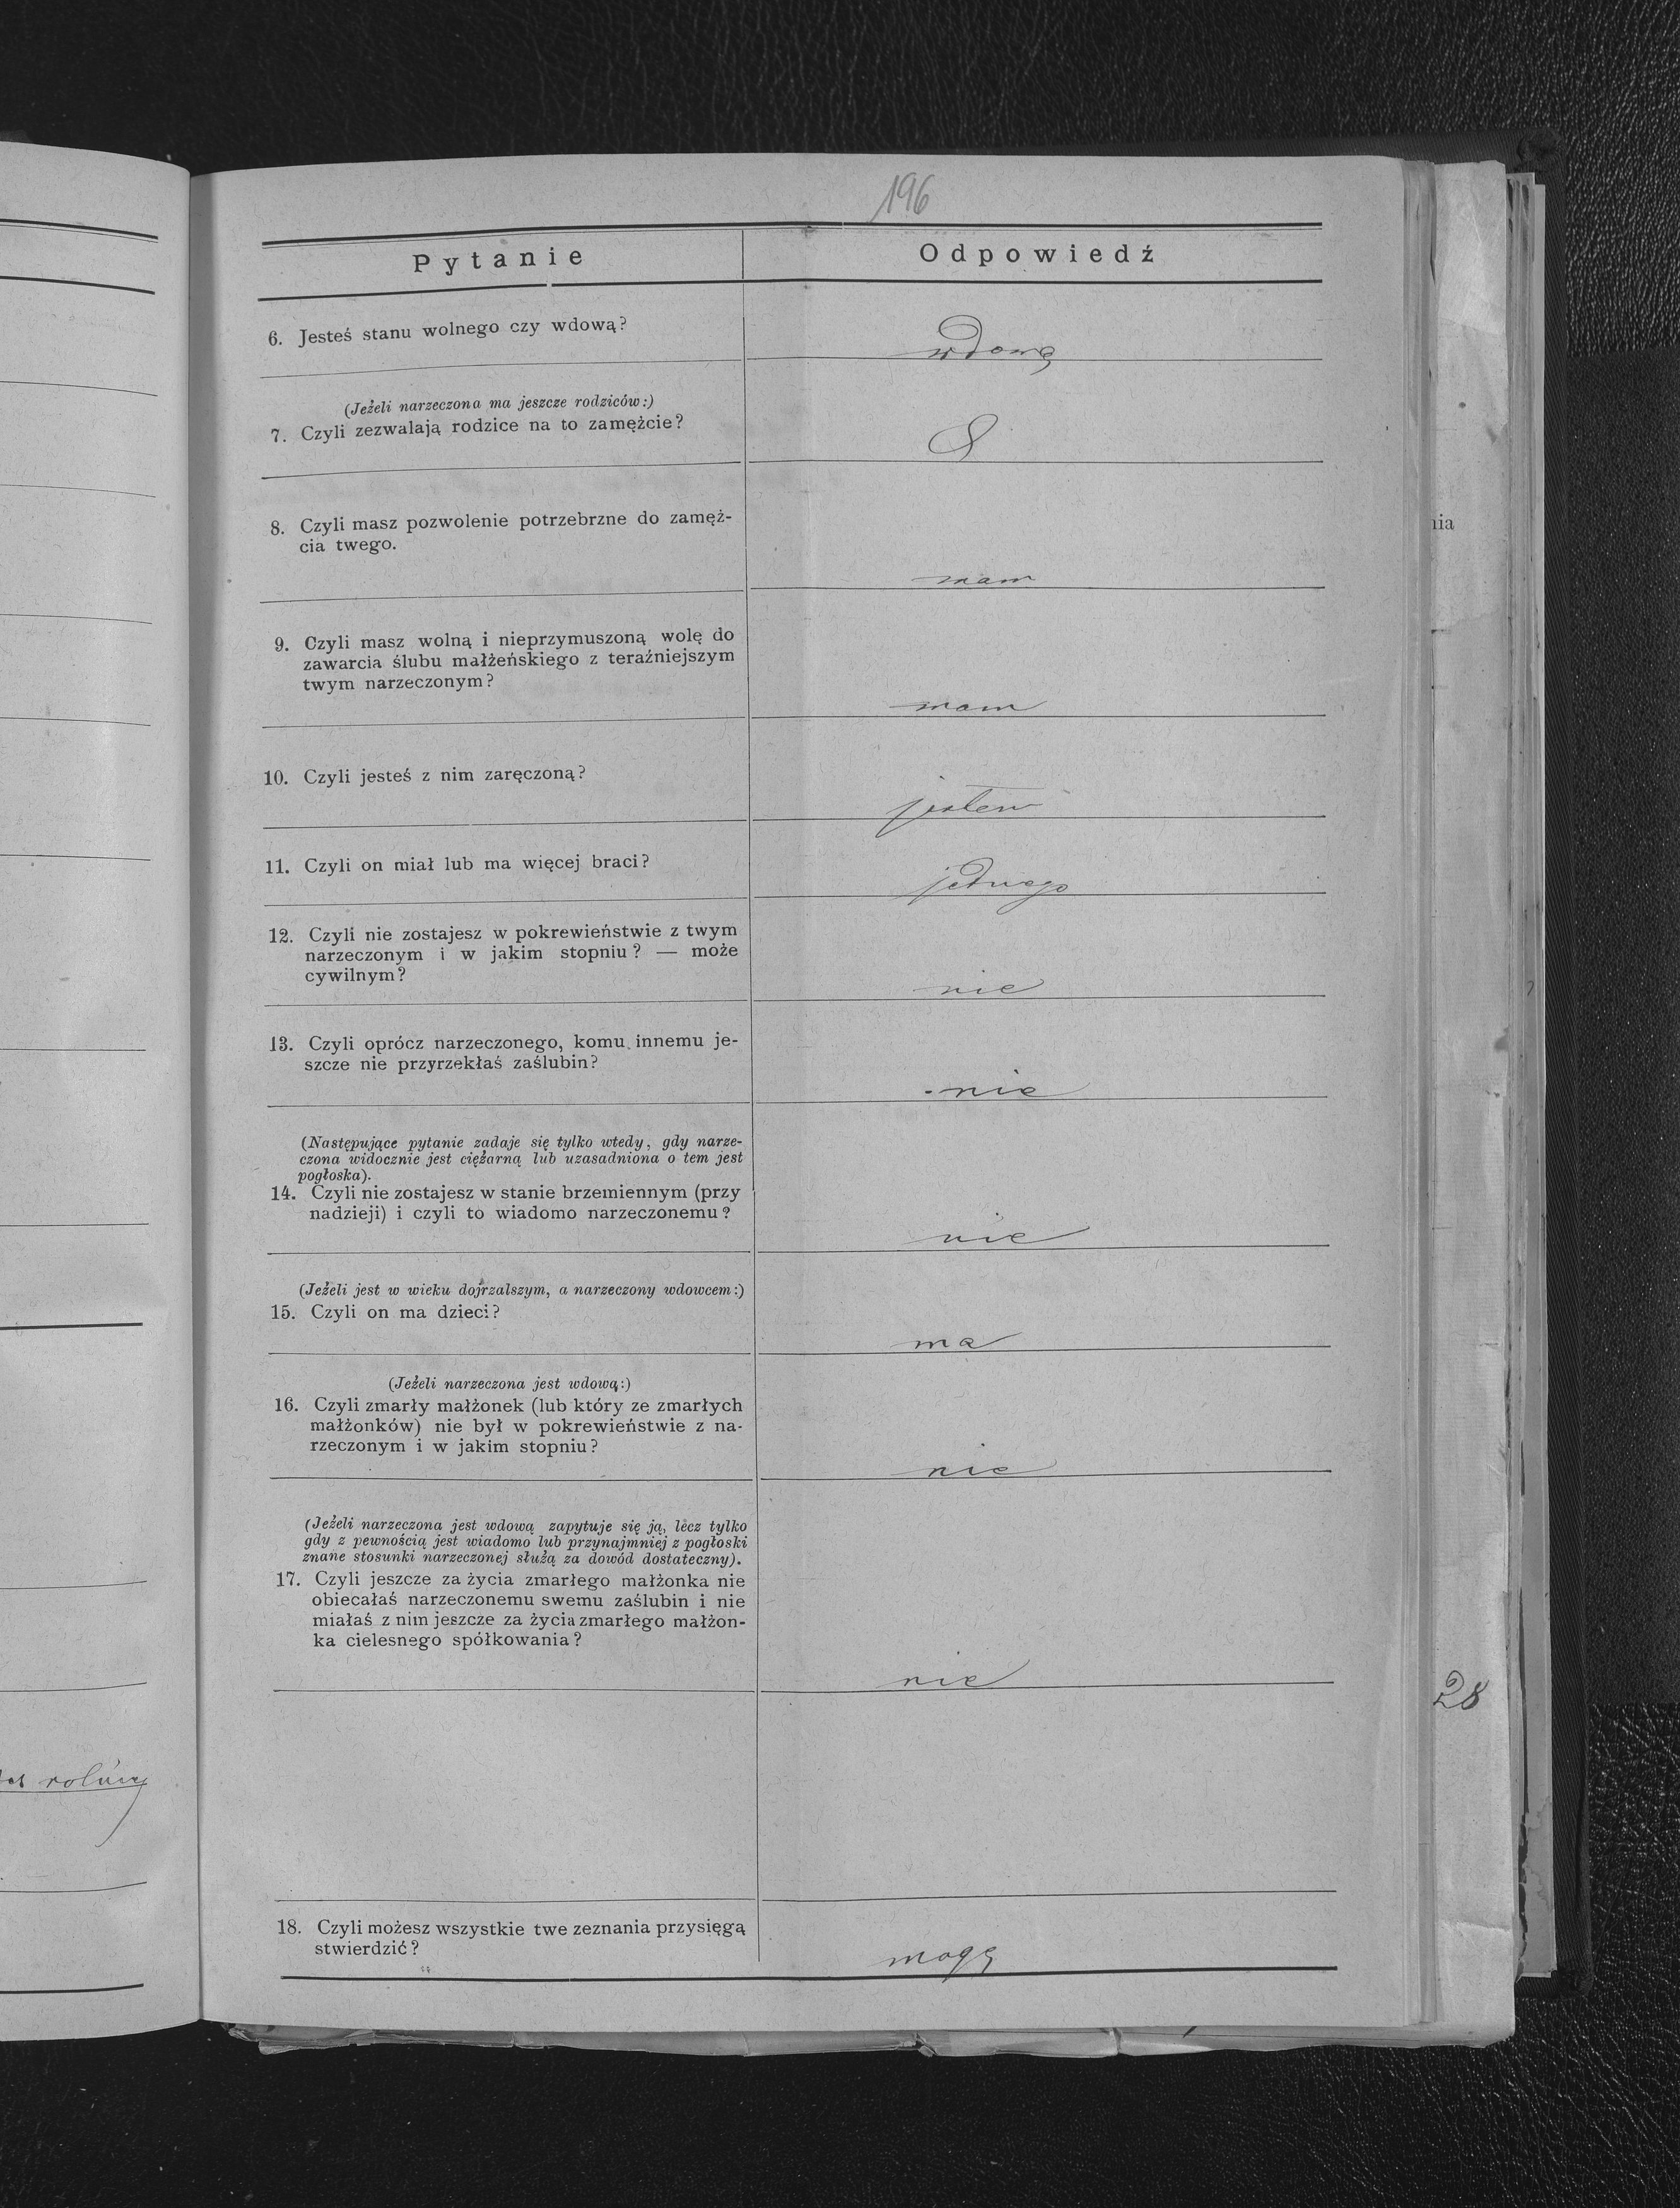 196
Pytanie
Odpowiedź
6. Jesteś stanu wolnego czy wdową?
wdową
(Jeżeli narzeczona ma jeszcze rodziców:)
7. Czyli zezwalają rodzice na to zamężcie?
8. Czyli masz pozwolenie potrzebrzne do zamęż-
cia twego.
mam
9. Czyli masz wolną i nieprzymuszoną wolę do
zawarcia ślubu małżeńskiego z teraźniejszym
twym narzeczonym?
mam
10. Czyli jesteś z nim zaręczoną?
jestem
11. Czyli on miał lub ma więcej braci?
jednego
12. Czyli nie zostajesz w pokrewieństwie z twym
narzeczonym i w jakim stopniu? — może
cywilnym?
nie
13. Czyli oprócz narzeczonego, komu innemu je-
szcze nie przyrzekłaś zaślubin?
nie
(Następujące pytanie zadaje się tylko wtedy, gdy narze-
czona widocznie jest ciężarną lub uzasadniona o tem jest
pogłoska).
14. Czyli nie zostajesz w stanie brzemiennym (przy
nadzieji) i czyli to wiadomo narzeczonemu?
nie
(Jeżeli jest w wieku dojrzalszym, a narzeczony wdowcem:)
15. Czyli on ma dzieci?
ma
(Jeżeli narzeczona jest wdową:)
16. Czyli zmarły małżonek (lub który ze zmarłych
małżonków) nie był w pokrewieństwie z na-
rzeczonym i w jakim stopniu?
nie
(Jeżeli narzeczona jest wdową zapytuje się ją, lecz tylko
gdy z pewnością jest wiadomo lub przynajmniej z pogłoski
znane stosunki narzeczonej służą za dowód dostateczny).
17. Czyli jeszcze za życia zmarłego małżonka nie
obiecałaś narzeczonemu swemu zaślubin i nie
miałaś z nim jeszcze za życia zmarłego małżon-
ka cielesnego spółkowania?
nie
18. Czyli możesz wszystkie twe zeznania przysięgą
stwierdzić?
mogę
nia
28